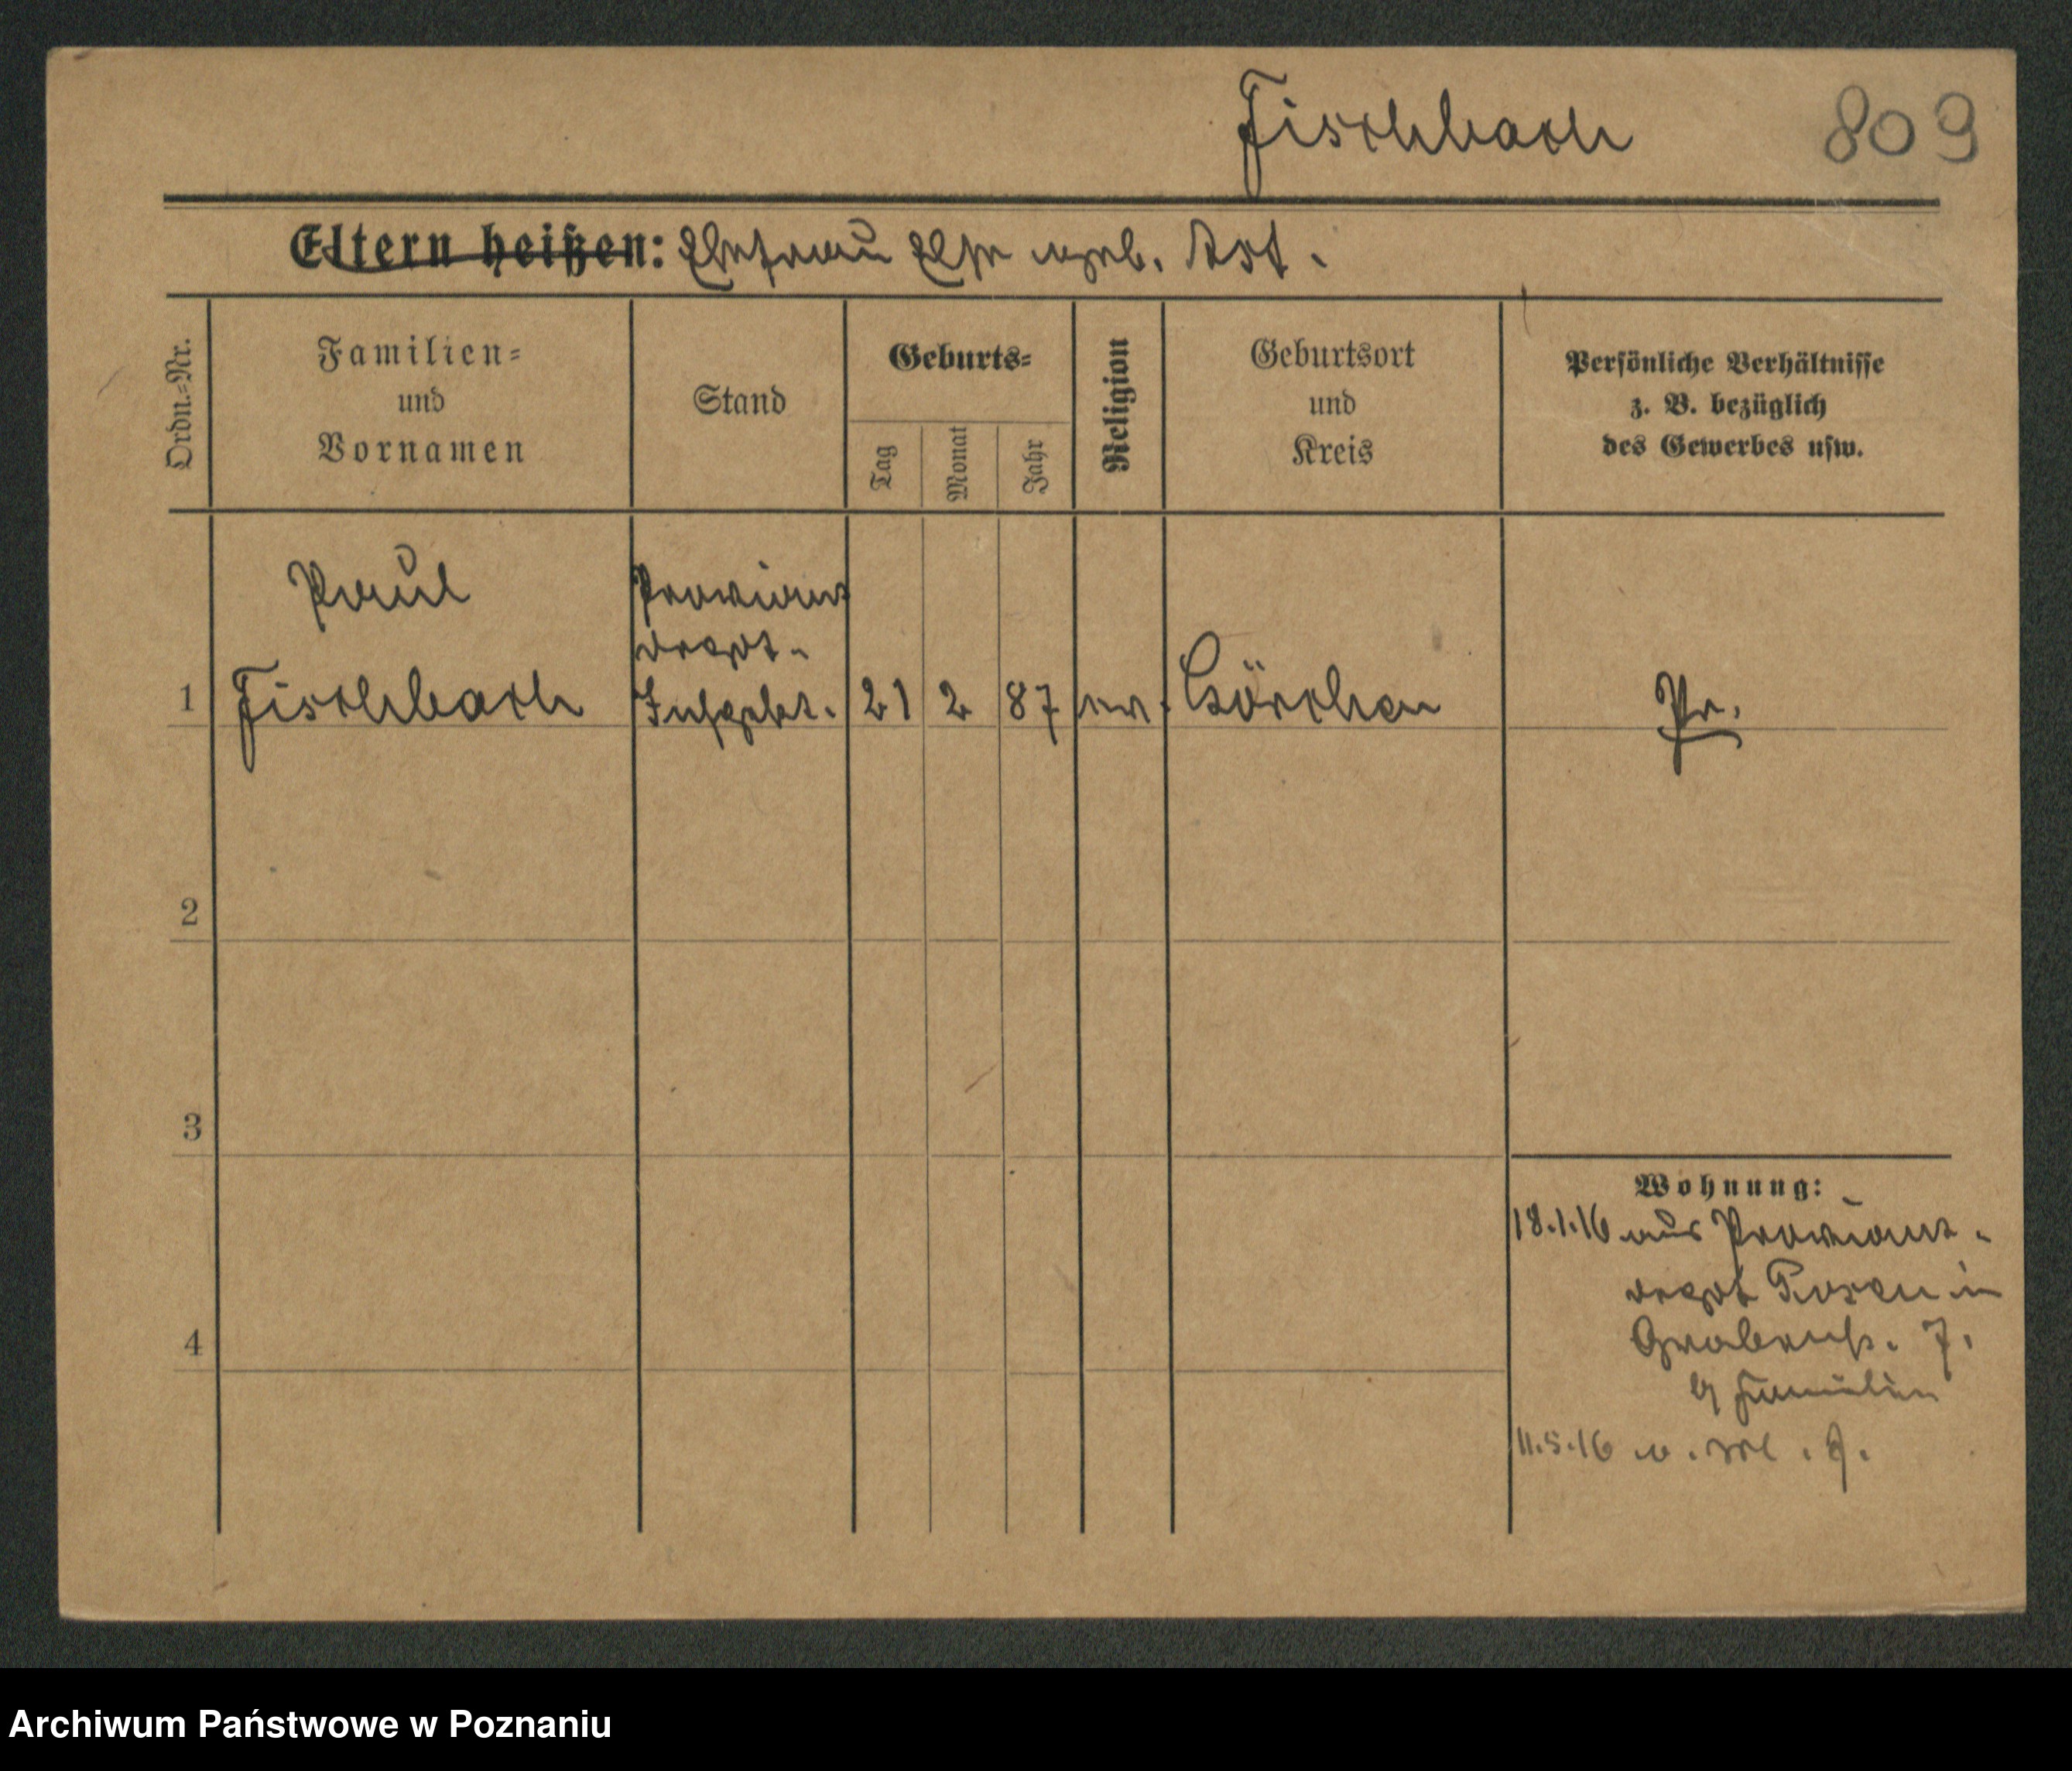 Fischbach
809
Eltern heißen: Ehefrau Else geb. Ast.
Ordn.=Nr.
Familien=
und
Vornamen
Stand
Geburts=
Tag
Monat
Jahr
Religion
Geburtsort
und
Kreis
Persönliche Verhältnisse
z. B. bezüglich
des Gewerbes usw.
1
Paul
Fischbach
Proviant
depot-
21
2
87
ev.
Görchen
Pr.
2
3
4
Wohnung:
18.1.16 aus Proviant-
depot Posen in
7.
Familien
11.5.16
Archiwum Państwowe w Poznaniu